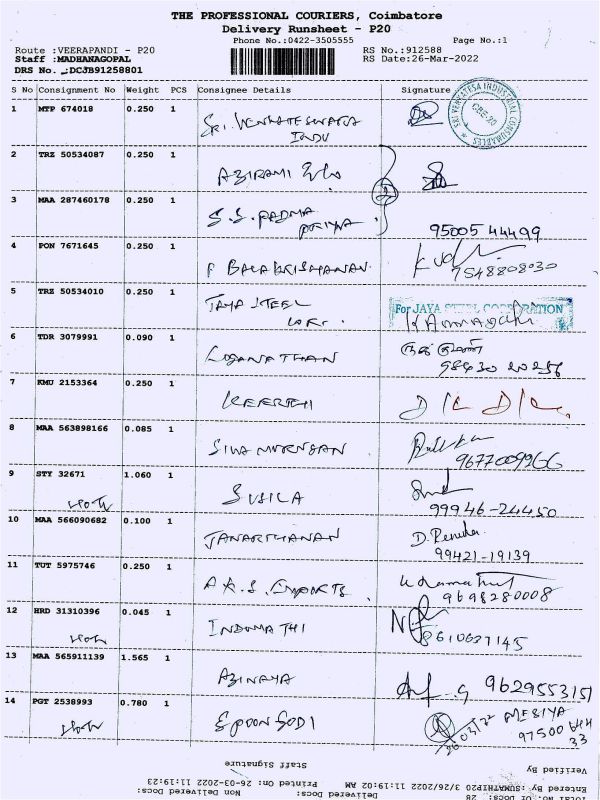 THE PROFESSIONAL COURIERS, Coimbatore
Delivery Runsheet - P20
Phone No.:0422-3505555 Page No.:1
Route :VEERAPANDI - P20 RS No.:912588
Staff :MADHANAGOPAL RS Date:26-Mar-2022
DRS No. :DCJB91258801
S No Consignment No Weight PCS Consignee Details Signature
1 MTP 674018 0.250 1 SRI. VENKATESWARA
INDU
SRI VENKATESA INDUSTRIAL CONSUMABLES
CBE-20
2 TRZ 50534087 0.250 1 ABIRAMI
3 MAA 287460178 0.250 1 S.S. PADMA
PRIYA 95005 44499
4 PON 7671645 0.250 1 P BALAKRISHNANAN 9548808030
5 TRZ 50534010 0.250 1 JAYA STEEL
CORP. For JAYA STEEL CORPORATION
6 TDR 3079991 0.090 1 LOGANATHAN
98430 20256
7 KMU 2153364 0.250 1 KEERTHI
8 MAA 563898166 0.085 1 SIVA MURUGAN
9677009966
9 STY 32671 1.060 1 SUSILA
99946-24450
10 MAA 566090682 0.100 1 JANARTHANAN D. Renuka
99421-19139
11 TUT 5975746 0.250 1 A.R.S. Exports
9698280008
12 HRD 31310396 0.045 1 INDUMATHI 8610637145
13 MAA 565911139 1.565 1 ABINAYA 9629553151
14 PGT 2538993 0.780 1 SPOON GODI
26/03/22 97500 644
33
Staff Signature Verified By
Entered By: SUMATHIP20 3/26/2022 11:19:02 AM Printed On: 26-03-2022 11:19:23
Total No Of Docs: 20 Delivered Docs: Non Delivered Docs: